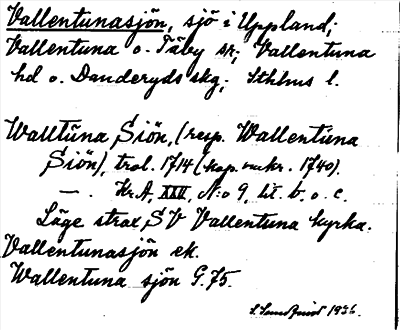 Vallentunasjön, sjö i Uppland;
Vallentuna o. Täby sr; Vallentuna
hd o. Danderyds skg; Sthlms l.
Walltuna Siön, (resp. Wallentuna
Siön), trol. 1714 (kop. 1740).
—. Kr.A, XXII, N:o 9, lit. b. o. c.
Läge strax SV Vallentuna kyrka.
Vallentunasjön ek.
Wallentuna sjön G.75.
1936.